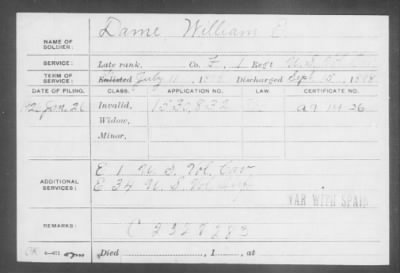 NAME OF SOLDIER: Dame, William C.
SERVICE: Late rank, Co. F, 1 Regt U.S. Vol. Cav.
TERM OF SERVICE: Enlisted July 11, 1898 Discharged Sept 15, 1898
DATE OF FILING. CLASS. APPLICATION NO. LAW. CERTIFICATE NO.
Jan. 26 Invalid, 1530832
Widow,
Minor,
ADDITIONAL SERVICES: E 1 U.S. Vol. Cav
E 34 U.S. Vol. Inf
WAR WITH SPAIN
REMARKS: C 2328283
Died , 1 , at